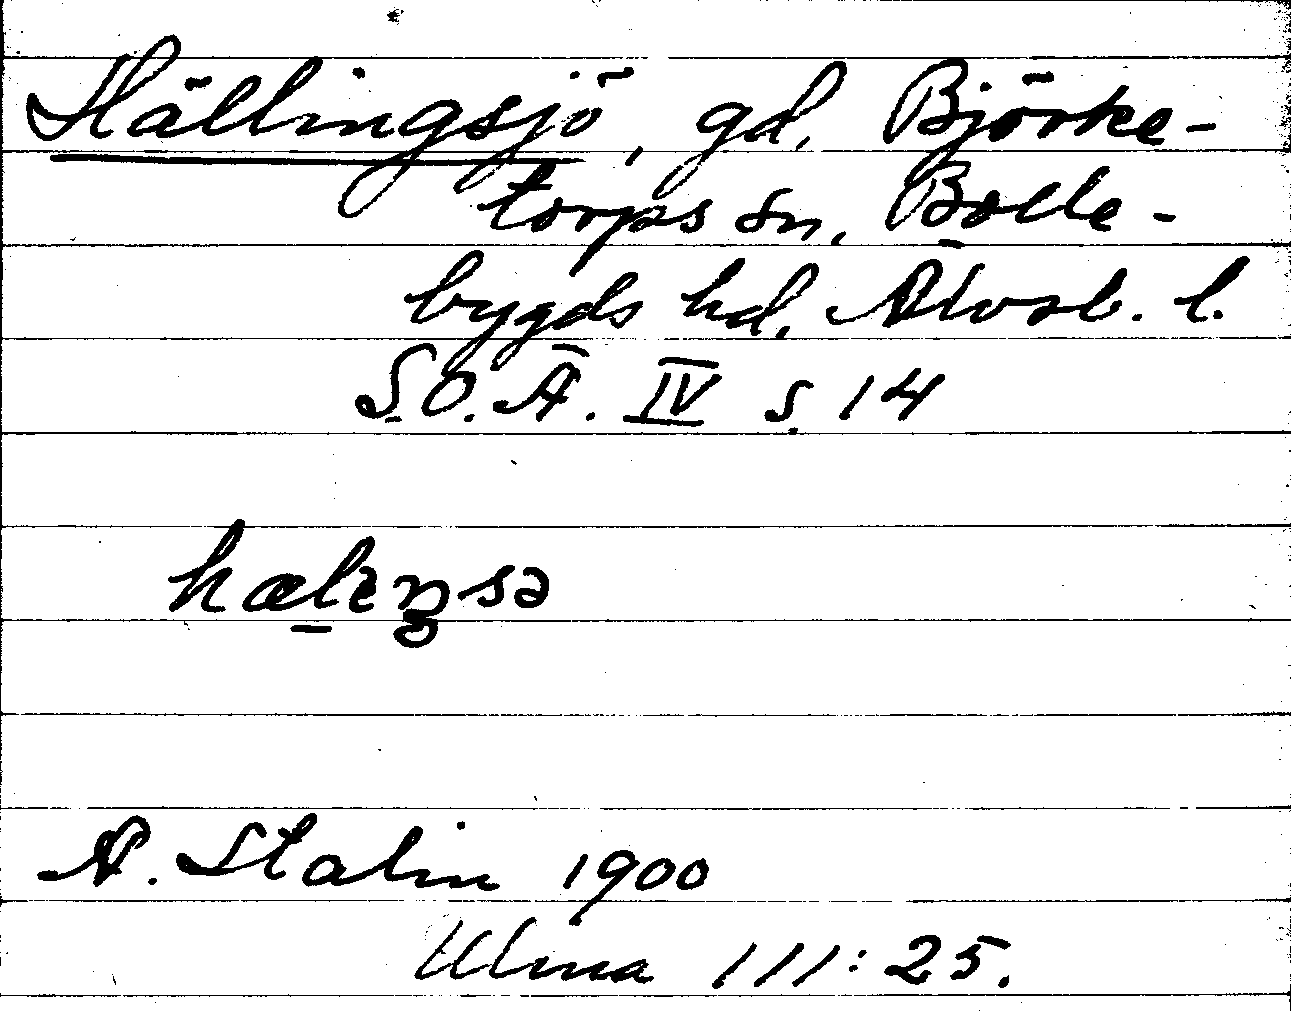 Hällingsjö, gd. Björke-
torps sn, Bolle-
bygds hd. Älvsb. l.
S.O.Ä. IV s. 14
hælɛŋsə
A. Stalin 1900
Ulma 111:25.